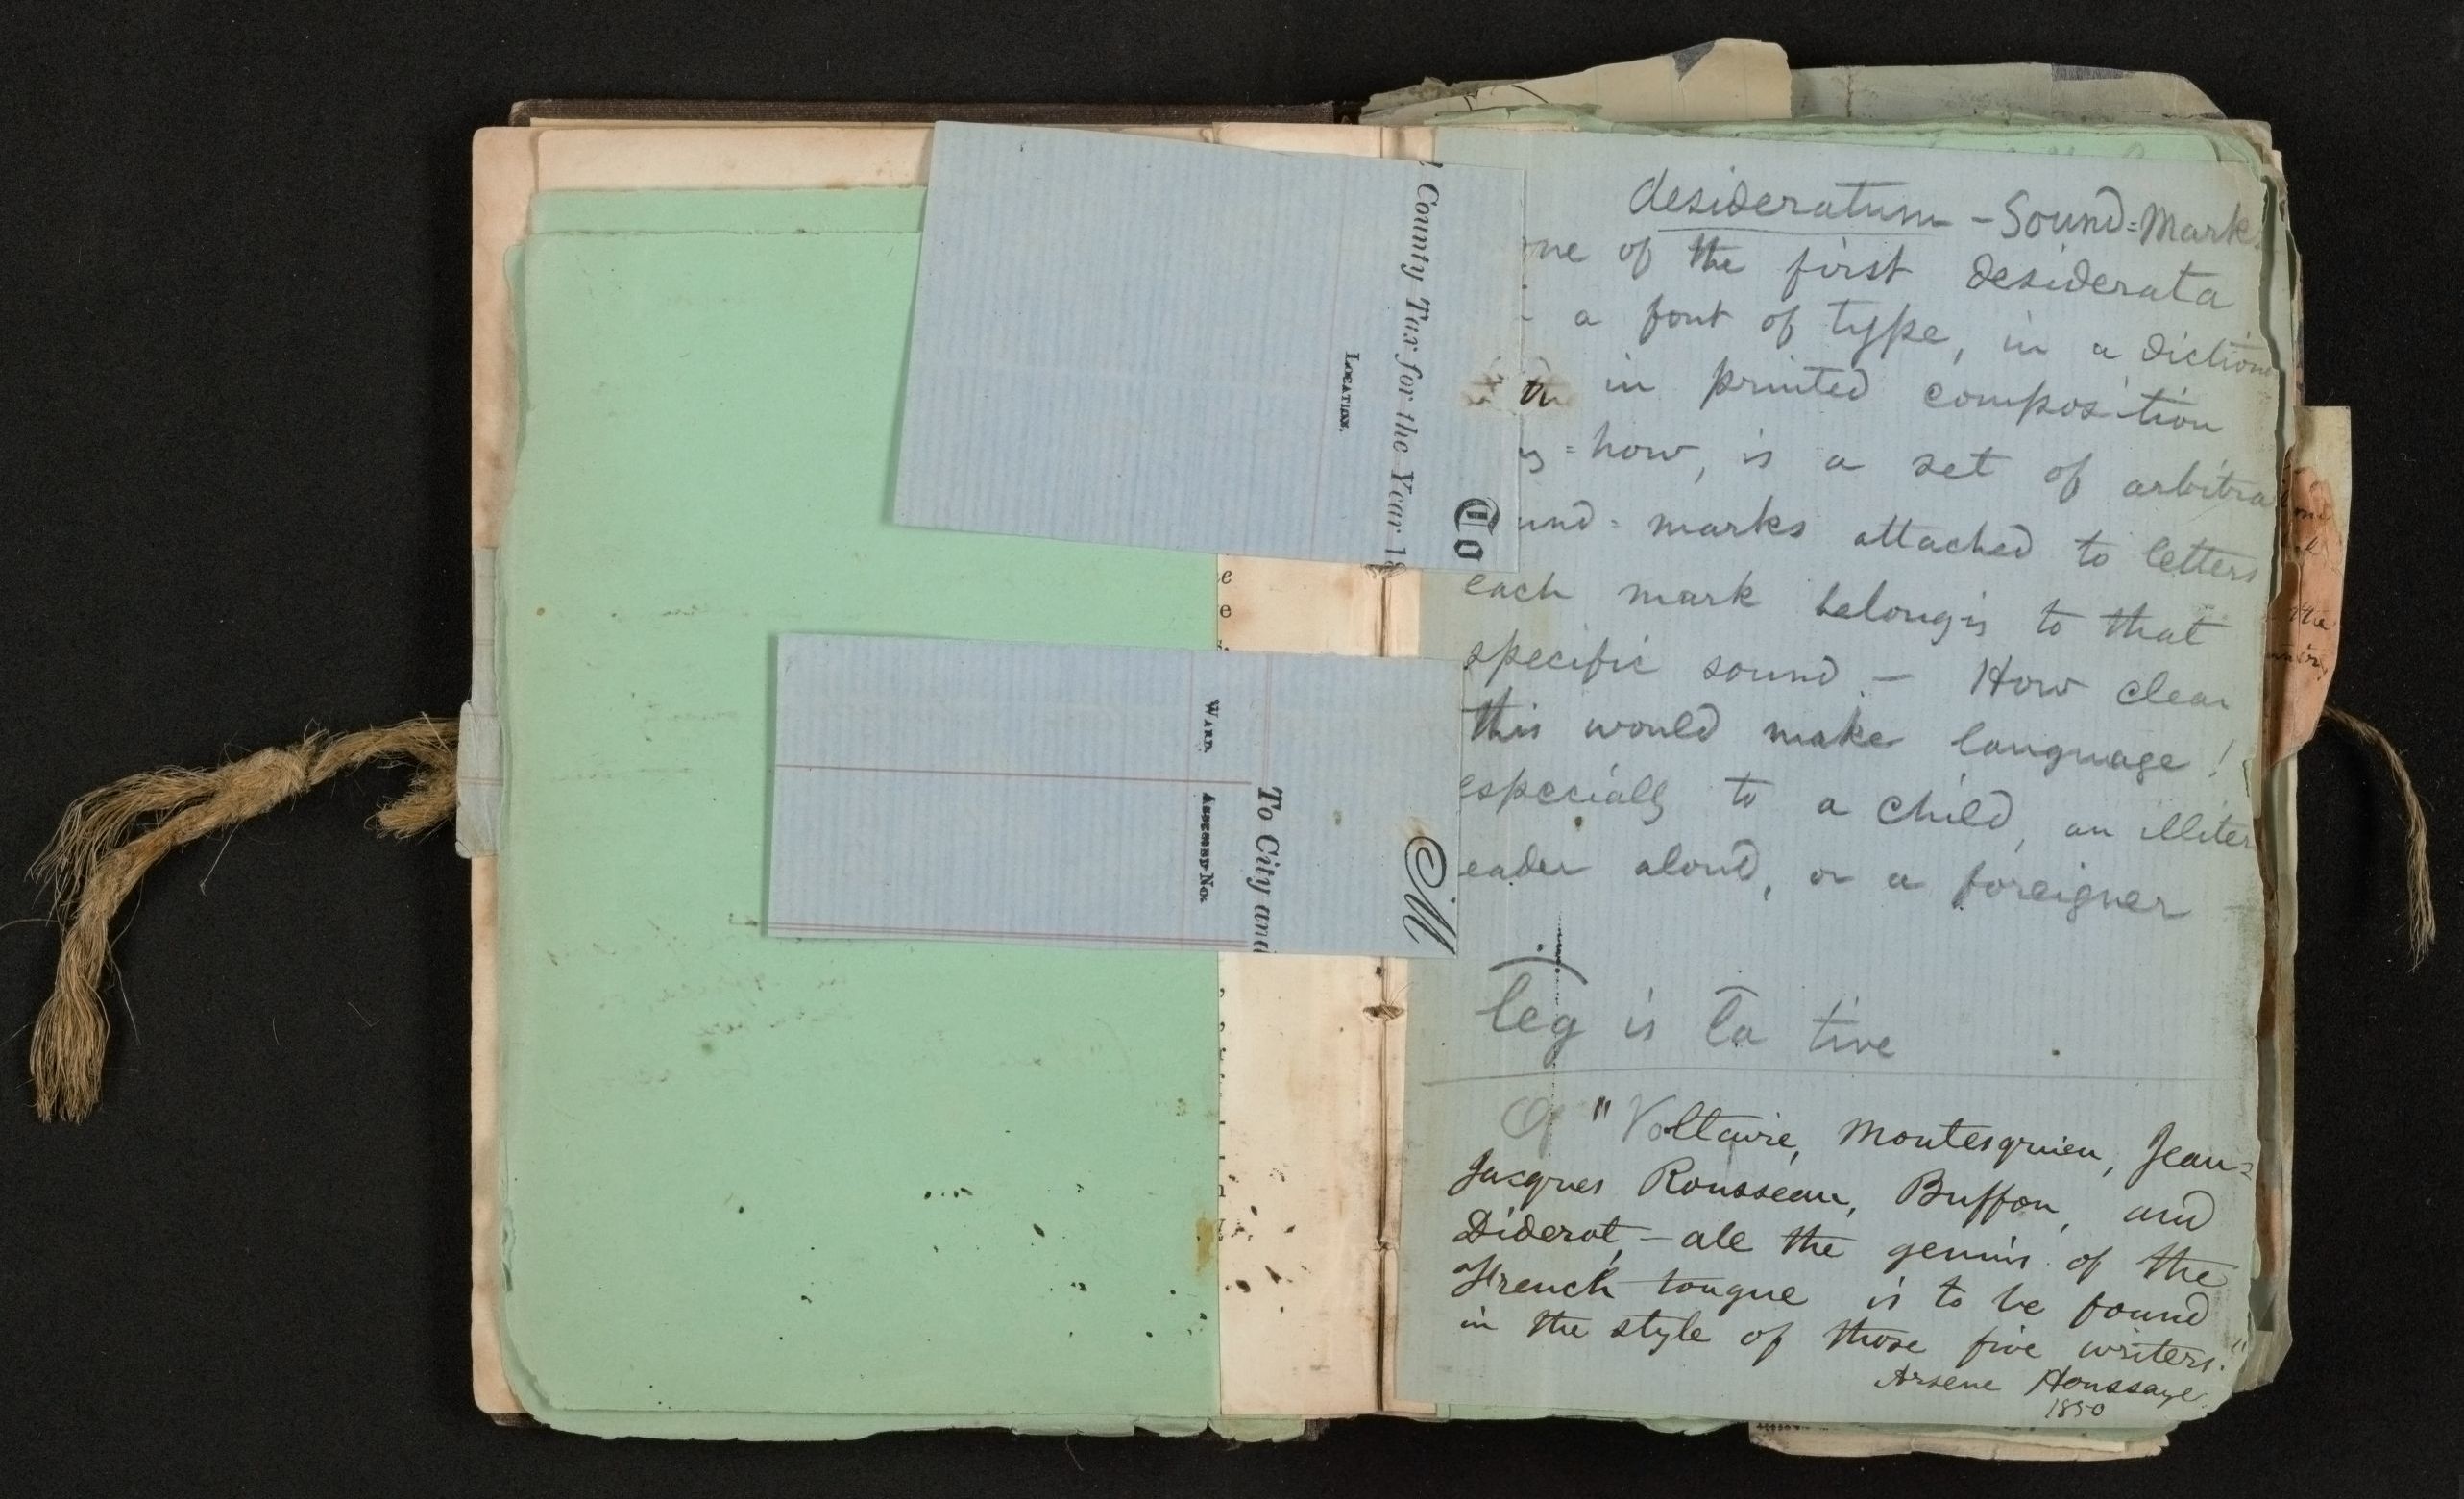 County Tax for the Year 18
LOCATION.
To
WARD.
ASSESSED NO.
To City and
M
desideratum - Sound=Marks
ne of the first desiderata
a font of type, in a diction
in printed composition
=how, is a set of arbitra
und=marks attached to letters
each mark belongs to that
specific sound. — How clear
this would make language!
especially to a child, an illiter
eader aloud, or a foreigner —
leg is la tive
"Voltaire, Montesquieu, Jean=
Jacques Rousseau, Buffon, and
Diderot, — all the genius of the
French tongue is to be found
in the style of those five writers."
Arsene Houssaye
1850